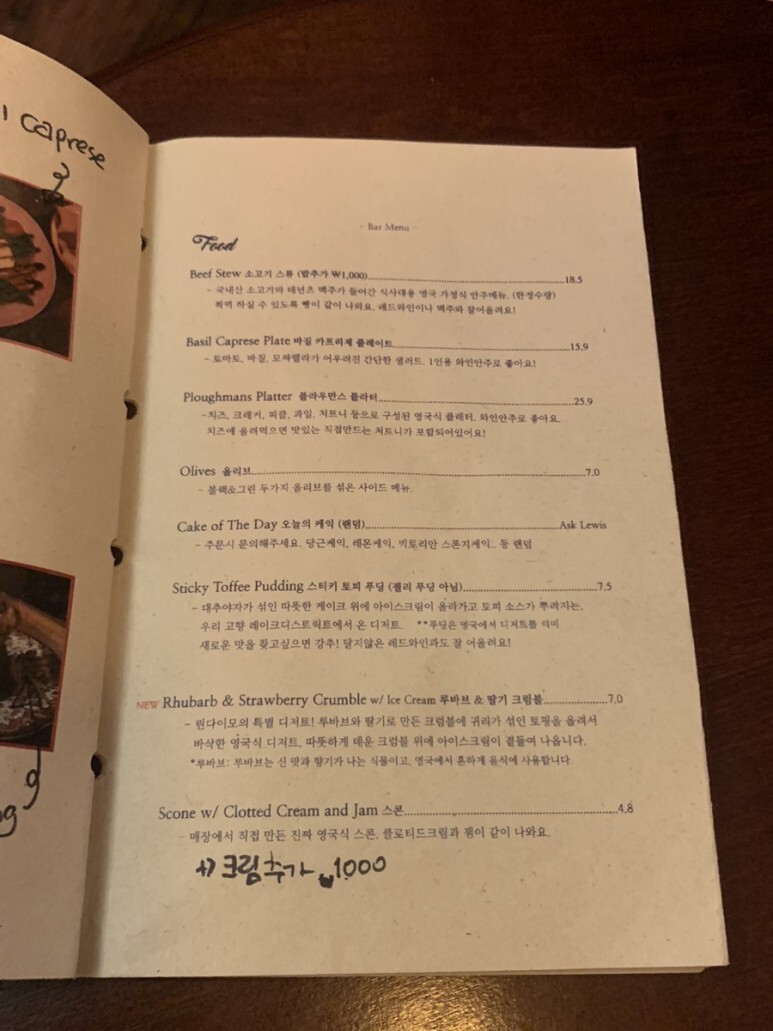 caprese
- Bar Menu -
Food
Beef Stew 소고기 스튜 (밥추가 ₩1,000)........18.5
- 국내산 소고기와 테넌츠 맥주가 들어간 식사대용 영국 가정식 안주메뉴. (한정수량)
찍먹 하실 수 있도록 빵이 같이 나와요. 레드와인이나 맥주와 잘어울려요!
Basil Caprese Plate 바질 카프리제 플레이트........15.9
- 토마토, 바질, 모짜렐라가 어우러진 간단한 샐러드. 1인용 와인안주로 좋아요!
Ploughmans Platter 플라우만스 플라터........25.9
-치즈, 크래커, 피클, 과일, 처트니 등으로 구성된 영국식 플래터. 와인안주로 좋아요.
치즈에 올려먹으면 맛있는 직접만드는 처트니가 포함되어있어요!
Olives 올리브........7.0
- 블랙&그린 두가지 올리브를 섞은 사이드 메뉴.
Cake of The Day 오늘의 케익 (랜덤)........Ask Lewis
- 주문시 문의해주세요. 당근케익, 레몬케익, 빅토리안 스폰지케익.. 등 랜덤
Sticky Toffee Pudding 스티키 토피 푸딩 (젤리 푸딩 아님)........7.5
- 대추야자가 섞인 따뜻한 케이크 위에 아이스크림이 올라가고 토피 소스가 뿌려지는,
우리 고향 레이크디스트릭트에서 온 디저트. **푸딩은 영국에서 디저트를 의미
새로운 맛을 찾고싶으면 강추! 달지않은 레드와인과도 잘 어울려요!
NEW Rhubarb & Strawberry Crumble w/ Ice Cream 루바브 & 딸기 크럼블........7.0
- 린다이모의 특별 디저트! 루바브와 딸기로 만든 크럼블에 귀리가 섞인 토핑을 올려서
바삭한 영국식 디저트. 따뜻하게 데운 크럼블 위에 아이스크림이 곁들여 나옵니다.
*루바브: 루바브는 신 맛과 향기가 나는 식물이고, 영국에서 흔하게 음식에 사용합니다.
Scone w/ Clotted Cream and Jam 스콘........4.8
- 매장에서 직접 만든 진짜 영국식 스콘. 클로티드크림과 잼이 같이 나와요.
크림추가 ₩1000